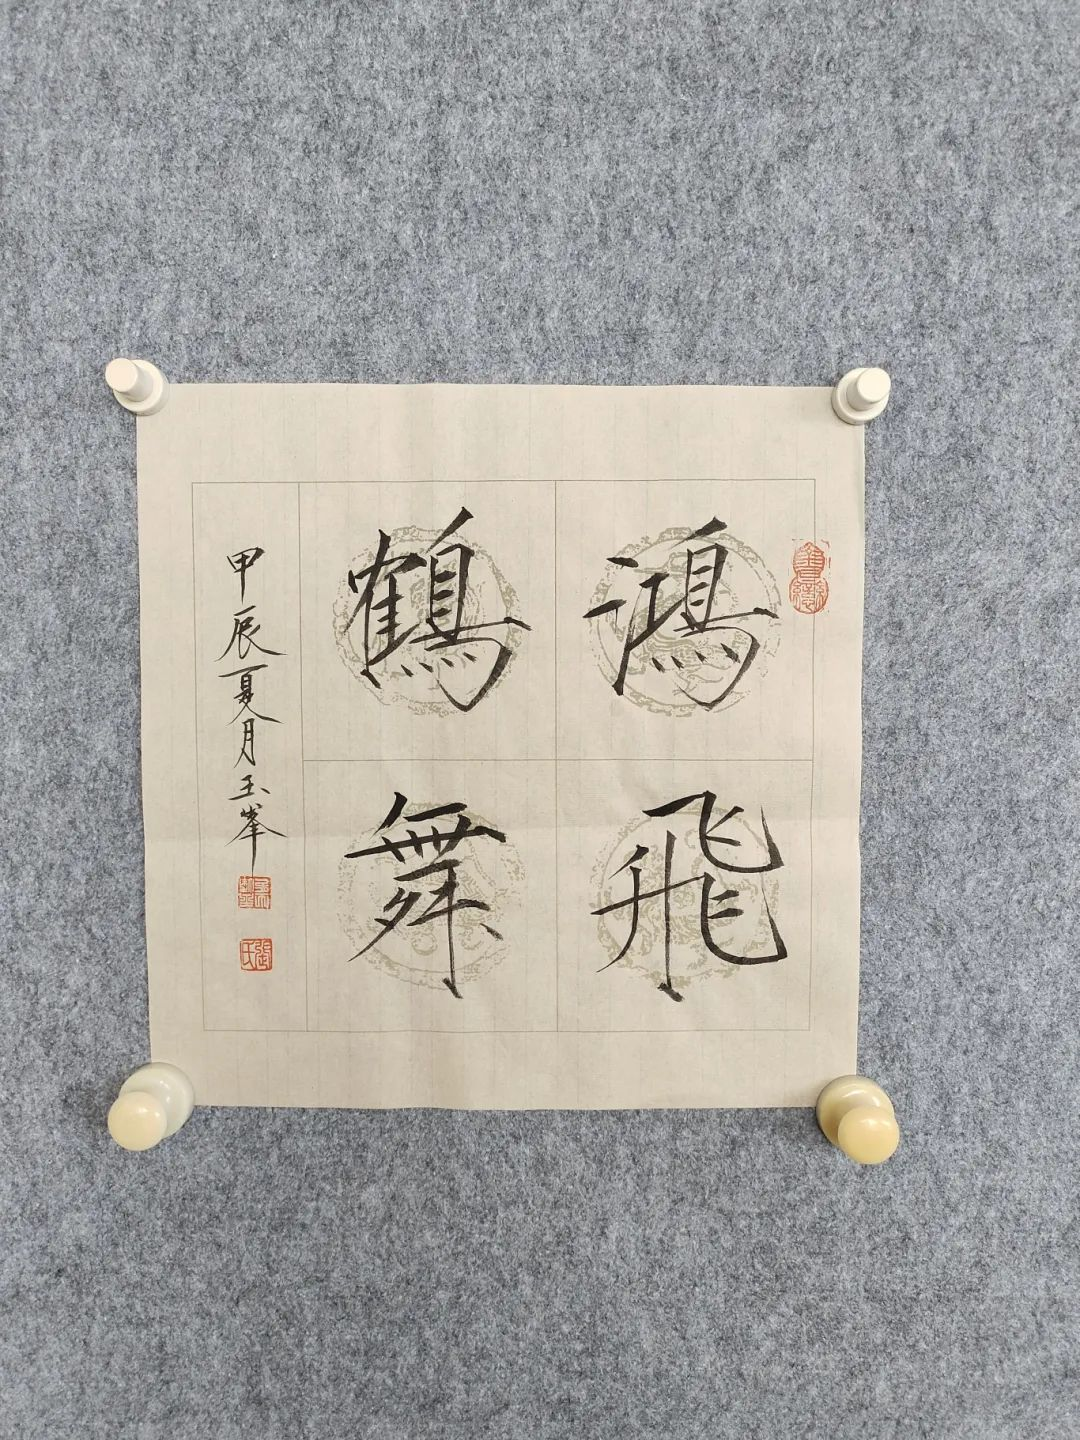 鴻飛
鶴舞
甲辰夏月玉峯
張氏